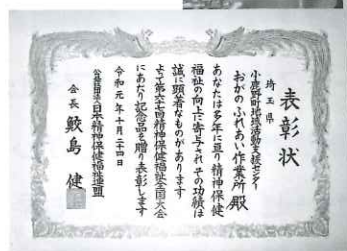 表彰状
埼玉県
小鹿野町地域活動支援センター
おがのふれあい作業所殿
あなたは多年に亘り精神保健
福祉の向上に寄与されその功績は
誠に顕著なものがあります
よって第六十七回精神保健福祉全国大会
にあたり記念品を贈り表彰します
令和元年十月二十四日
公益社団法人日本精神保健福祉連盟
会長 鮫島健